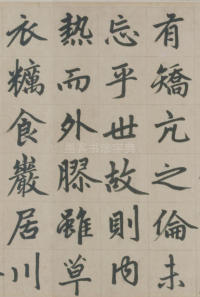 有矯亢之倫未
忘乎世故則内
熱而外膠雖草
衣糲食巖居川